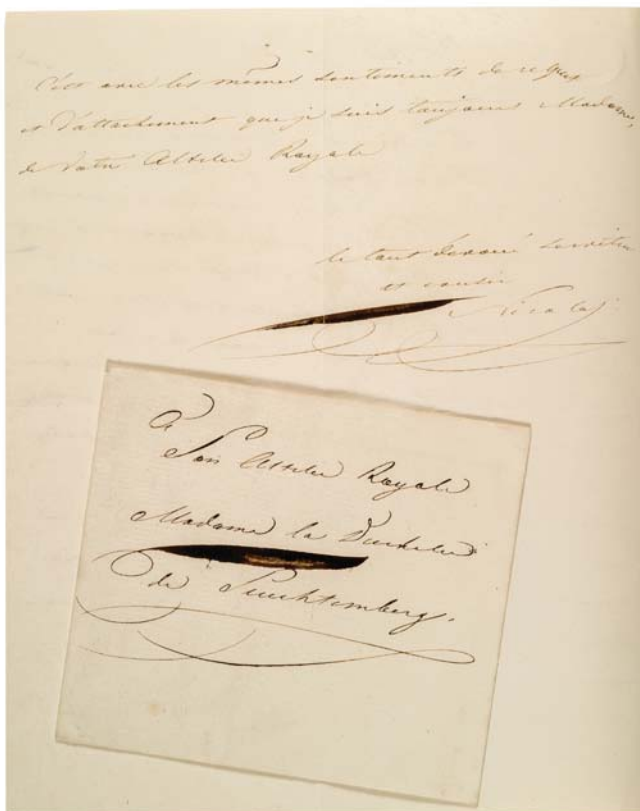 C'est avec les mêmes sentiments de respect
et d'attachement que je suis toujours Madame,
de Votre Altesse Royale
le tout dévoué serviteur
et cousin
Nicolas
A
Son Altesse Royale
Madame la Duchesse
de Leuchtemberg.